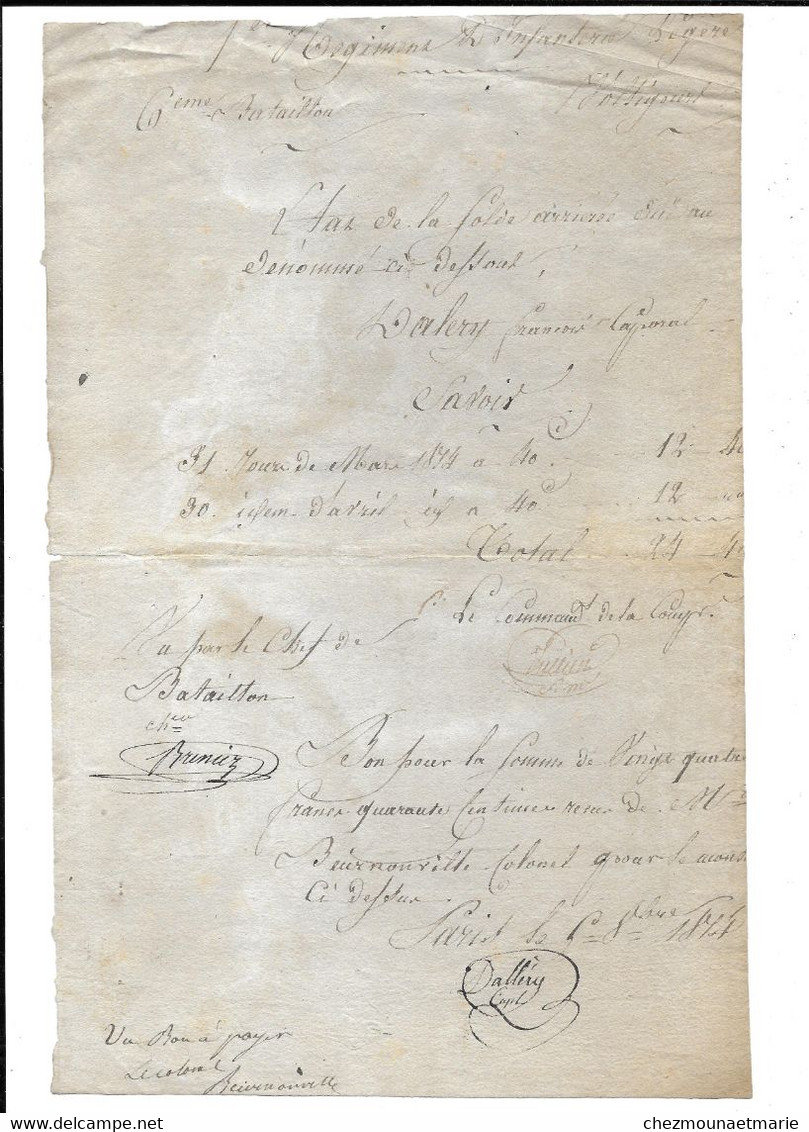 1er Regiment D'Infanterie Légere
6eme Bataillon Voltigeurs
Etat de la Solde arriérée due au
dénommé ci dessous,
Dalery françois Caporal
Savoir
31 Jours de Mars 1814 à 40c 12 40
30. idem d'avril id à 40c 12
Total 24 40
Le Command.t de la Comp.e
Vu par le Chef de
Bataillon
Bon pour la Somme de Vingt quatre
francs quarante Centimes reçue de Mr
Beurnonville Colonel pour le mois
Ci dessus
Paris le 8bre 1814
Dallery
Capl
Vu Bon à payer
Le colonel
Beurnonville
chezmounaetmarie